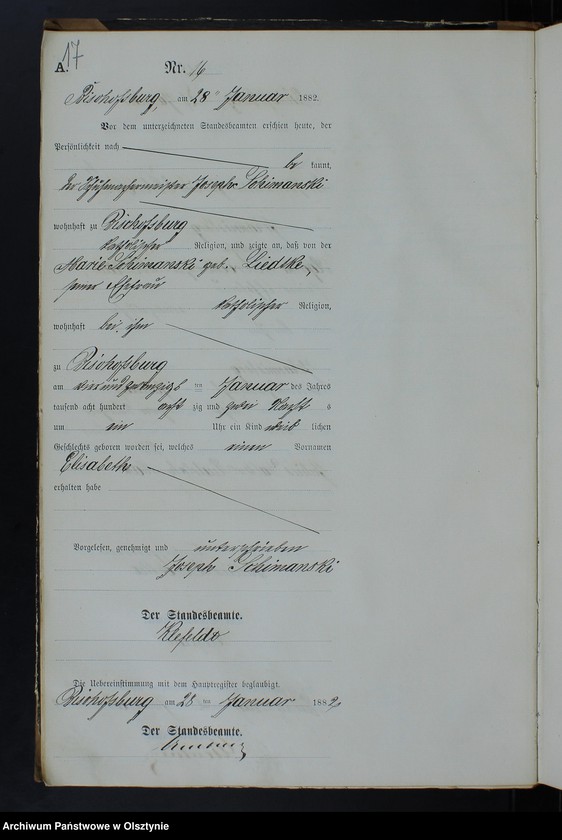 17
A.
Nr. 16
Bischofsburg, am 28ten Januar 1882.
Vor dem unterzeichneten Standesbeamten erschien heute, der
Persönlichkeit nach
be kannt,
der Schuhmachermeister Joseph Schimanski
wohnhaft zu Bischofsburg
katholischer Religion, und zeigte an, daß von der
Marie Schimanski geb. Liedtke,
seiner Ehefrau
katholischer Religion,
wohnhaft bei ihm
zu Bischofsburg
am vierundzwanzigsten Januar des Jahres
tausend acht hundert acht zig und zwei Nachts
um ein Uhr ein Kind weib lichen
Geschlechts geboren worden sei, welches einen Vornamen
Elisabeth
erhalten habe
Vorgelesen, genehmigt und unterschrieben
Joseph Schimanski
Der Standesbeamte.
Klefeldt
Die Uebereinstimmung mit dem Hauptregister beglaubigt.
Bischofsburg am 28ten Januar 1882.
Der Standesbeamte.
Archiwum Państwowe w Olsztynie